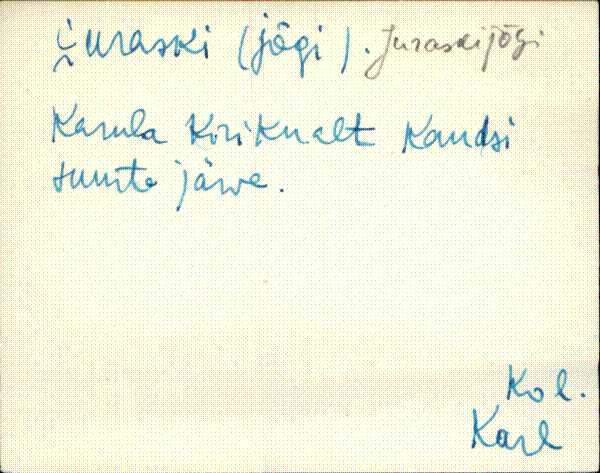 i̯uraski (jõgi). Juraskijõgi
Karula Kirikualt Kandsi
suurte järve.
Kol.
Karl